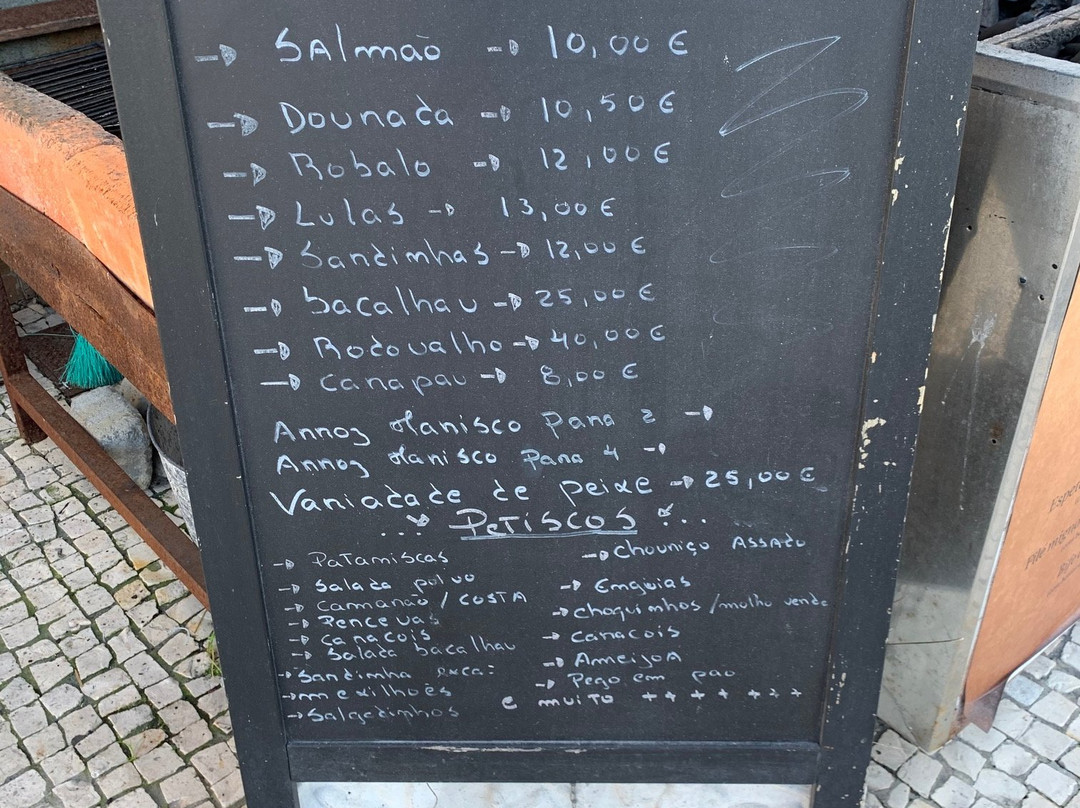 → SAlmão → 10,00 €
→ Dourada → 10,50 €
→ Robalo → 12,00 €
→ Lulas → 13,00 €
→ Sardinhas → 12,00 €
→ bacalhau → 25,00 €
→ Rodovalho → 40,00 €
→ carapau → 8,00 €
Arroz Marisco Para 2 →
Arroz Marisco Para 4 →
Variadade de peixe → 25,00 €
... PeTiscos ...
→ PaTaniscas
→ Salada polvo
→ Camarão / COSTA
→ Perceves
→ caracois
→ Salada bacalhau
→ Sardinha esca:
→ mexilhoes
→ Salgadinhos
→ Chouriço ASSADO
→ Enguias
→ Choquinhos / molho verde
→ Caracois
→ AmeijoA
→ Pego em pao
e muito + + + + + + +